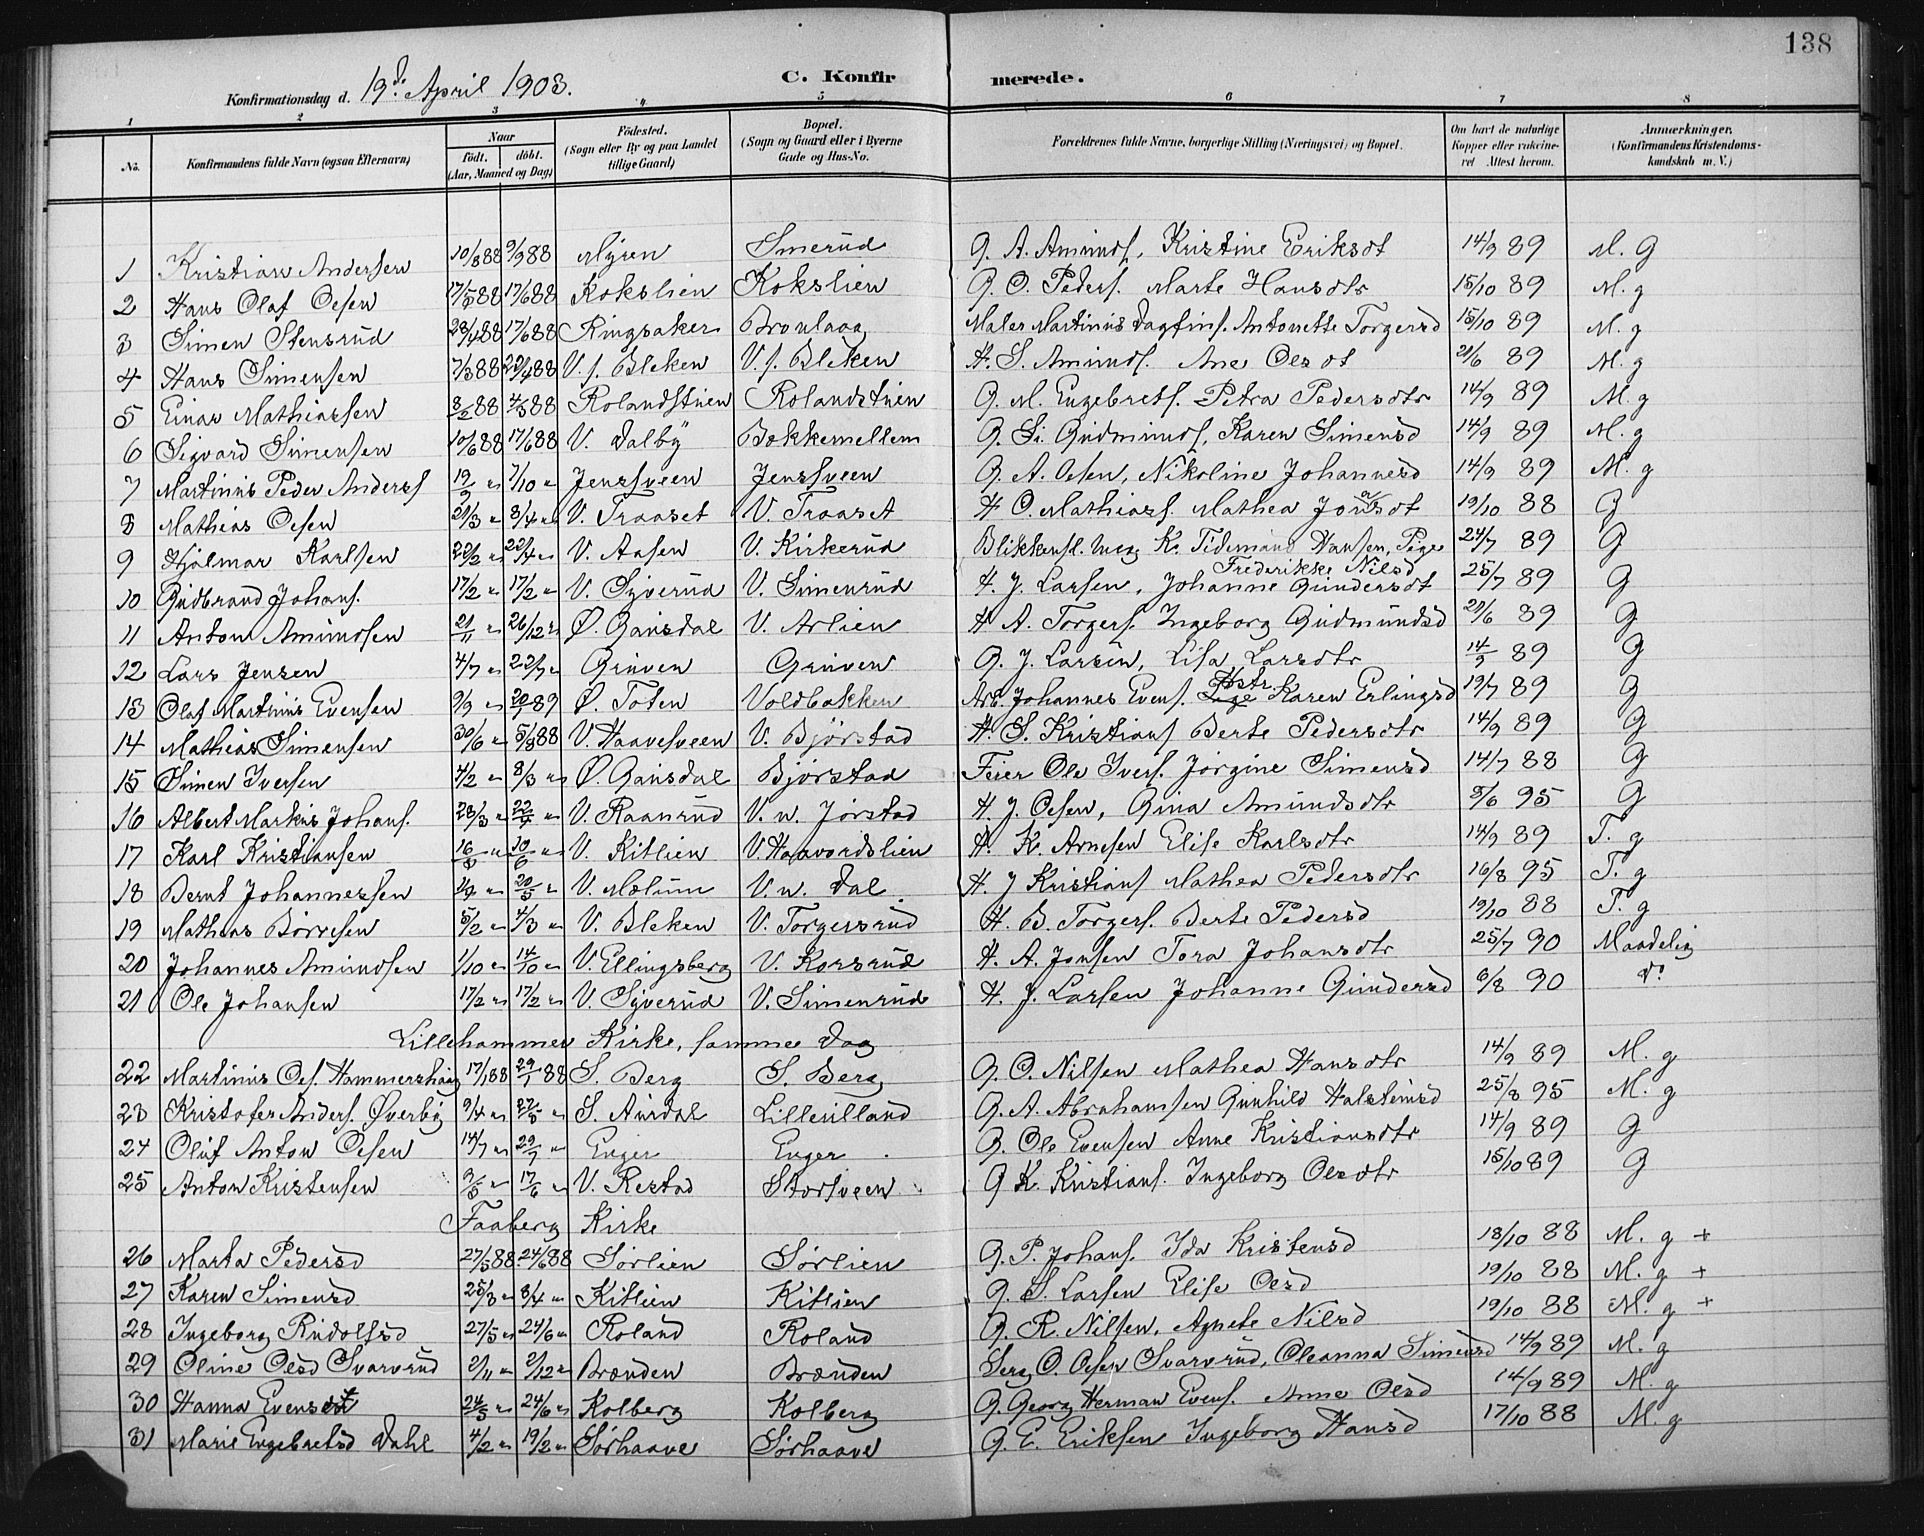 138
Konfirmationsdag d. 19d. April 1903. C. Konfirmerede.
1 2 3 4 5 6 7 8
No. Konfirmandens fulde Navn (ogsaa Efternavn) Naar født. døbt. (Aar, Maaned og Dag) Fødested. (Sogn eller By og paa Landet tillige Gaard) Bopæl. (Sogn og Gaard eller i Byerne Gade og Hus-No. Forældrenes fulde Navne, borgerlige Stilling (Næringsvei) og Bopæl. Om havt de naturlige Kopper eller vaccineret Attest herom. Anmærkninger. (Konfirmandens Kristendomskundskab m. V.)
1 Kristian Andersen 10/8 88 9/9 88 Myren Smerud G. A. Amunds. Kristine Eriksdt 14/9 89 M. G
2 Hans Olaf Olsen 17/5 88 17/6 88 Kokslien Kokslien G. O. Peders. Marte Hansdtr 15/10 89 M. g
3 Simen Stensrud 28/4 88 17/6 88 Ringsaker Maler Martinus Dagfins. Antonette Torgersd 15/10 89 M. g
4 Hans Simensen 7/3 88 22/4 88 V. s. Bleken V. s. Bleken H. S. Amunds. Ane Olsdt 21/6 89 M. g
5 Einar Mathiassen 3/2 88 4/3 88 Rolandstuen Rolandstuen G. M. Engebrets. Petra Pedersdtr 14/9 89 M. g
6 Sigvard Simensen 10/6 88 17/6 88 V. Dalby Bækkemellem G. Si. Gudmunds. Karen Simensd 14/9 89 M. g
7 Martinus Peder Anders 19/9 " 7/10 " Jenssveen Jenssveen G. A. Olsen, Nikoline Johannesd 14/9 89 M. g
8 Mathias Olsen 21/3 " 8/4 " V. Traaset V. Traaset H. O. Mathias. Mathea Jonsdt 19/10 88 G
9 Hjalmar Karlsen 22/2 " 22/4 " V. Aasen V. Kirkerud Blikkensl. K. Tidemand Hansen, Pige Frederikke Nilsd 24/7 89 G
10 Gudbrand Johans. 17/2 " 17/2 " V. Syverud V. Simenrud H. J. Larsen, Johanne Gundersdt 25/7 89 G
11 Anton Amundsen 21/11 " 26/12 " Ø. Gausdal V. Aslien H. A. Torgers. Ingeborg Gudmundsd 21/6 89 G
12 Lars Jensen 4/7 " 22/7 " Gruven Gruven G. J. Larsen, Lisa Larsdtr 14/9 89 G
13 Olaf Martinus Evensen 9/9 " 20/1 89 Ø. Toten Voldbakken Arb. Johannes Evens. Hstr Karen Erlingsd 19/7 89 G
14 Mathias Simensen 30/6 " 5/8 88 V. Haavesveen V. Bjørstad H. S. Kristians Berte Pedersdtr 14/9 89 G
15 Simen Iversen 4/2 " 8/3 " Ø. Gausdal Bjørstad Feier Ole Ivers. Jørgine Simensd 14/7 88 G
16 Albert Markus Johans. 28/3 " 22/4 " V. Raanrud V. n. Jørstad H. J. Olsen, Gina Amundsdtr 5/6 95 G
17 Karl Kristiansen 16/5 " 10/6 " V. Kitlien V. Haavardslien H. K. Arnesen Elise Karlsdtr 14/9 89 T. g
18 Bernt Johannessen " 20/5 " V. Mælum V. n. Dal H. J Kristians Mathea Pedersdtr 16/8 95 T. g
19 Mathias Børresen 5/2 " 4/3 " V. Bleken V. Torgersrud H. B. Torgers. Berte Pedersd 19/10 88 T. g
20 Johannes Amundsen 1/10 " 14/10 " V. Ellingsberg V. Korsrud H. A. Jonsen Tora Johansdtr 25/7 90 Maadelig
21 Ole Johansen 17/2 " 17/2 " V. Syverud V. Simenrud H. J. Larsen Johanne Gundersd 8/8 90 do
Lillehammer Kirke, samme Dag
22 Martinus Ols. Hammershaug 17/1 88 29/1 88 S. Berg S. Berg G. O. Nilsen Mathea Hansdtr 14/9 89 M. g
23 Kristofer Anders. Øverby 9/4 " 27/5 " S. Aurdal Lillerilland G. A. Abrahamsen Gunhild Halsteinsd 25/8 95 M. g
24 Oluf Anton Olsen 14/7 " 29/7 " Enger Enger G. Ole Evensen Anne Kristiansdtr 14/9 89 G
25 Anton Kristensen 9/5 " 17/6 " V. Restad Storsveen G K. Kristians. Ingeborg Olsdtr 15/10 89 G
Faaberg Kirke
26 Marta Pedersd 27/5 88 24/6 88 Sørlien Sørlien G. P. Johans. Ida Kristensd 18/10 88 M. g +
27 Karen Simensd 25/3 " 8/4 " Kitlien Kitlien G. S. Larsen Elise Olsd 19/10 88 M. g +
28 Ingeborg Rudolfsd 27/5 " 24/6 " Roland Roland G. R. Nilsen, Agnete Nilsd 19/10 88 M. g +
29 Oline Olsd Svarvrud 2/11 " 2/12 " Brænden Brænden Serg. O. Olsen Svarvrud, Oleanna Simensd 14/9 89 M. g
30 Hanna Evensdt 24/5 " 24/6 " Kolberg Kolberg G. Georg Herman Evens. Anne Olsd 14/9 89 M. g
31 Marie Engebretsd Dahl 4/2 " 19/2 " Sørhaave Sørhaave G. E. Eriksen Ingeborg Hansd 17/10 88 M. g